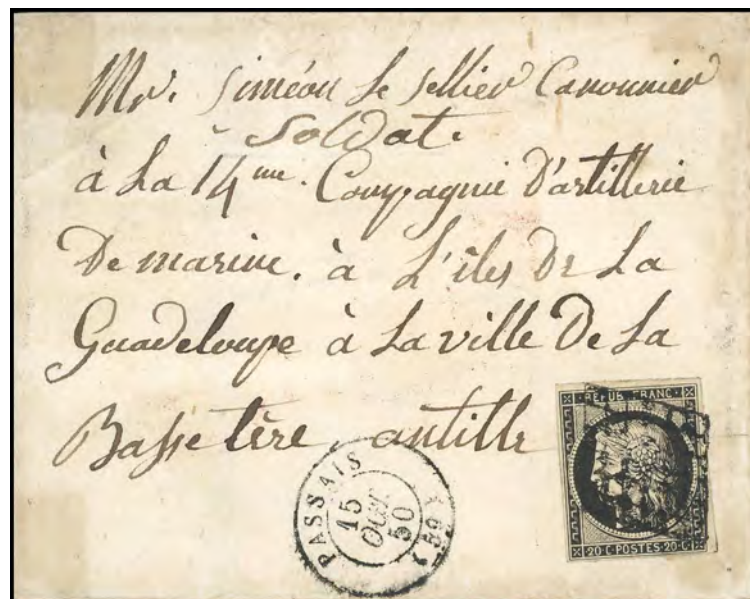 Mr. Siméon Le Sellier Canonnier
Soldat.
à La 14me. Compagnie D'artillerie
De marine. à L'iles De La
Guadeloupe à La ville De La
Basse tère, antille
PASSAIS
15
OCT.
50
REPUB. FRANC.
20·C·POSTES·20·C